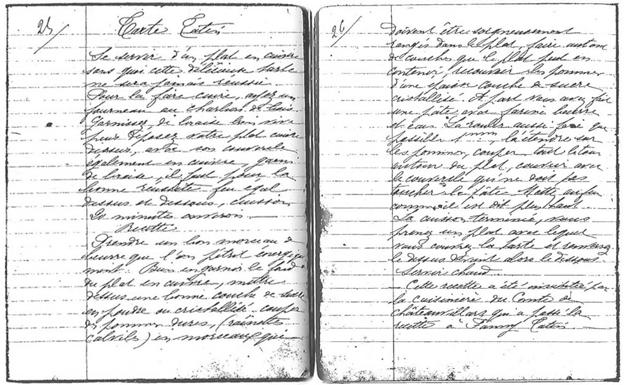 25/
Tarte Tatin
Se servir d'un plat en cuivre
sans quoi cette délicieuse tarte
ne sera jamais réussie
Pour la faire cuire, avoir un
fourneau au charbon de bois
Garnissez, de braise bien vive
puis déposez votre plat cuivre
dessus, avoir son couvercle
également en cuivre garni
de braise, il faut pour la
bonne réussite feu égal
dessus et dessous, cuisson
20 minutes environ.
Recette
Prendre un bon morceau de
beurre que l'on pétrit
Puis en garnir le fond
du plat en cuivre, mettre
dessus une bonne couche de sucre
en poudre ou cristallisé. couper
des pommes dures, (rainettes
calvilles) en morceaux qui
26/
doivent être soigneusement
rangés dans le plat, faire autant
de couches que le plat peut en
contenir, recouvrir les pommes
d'une épaisse couche de sucre
cristallisé. A part vous avez fait
une pâte avec farine beurre
et eau. La rouler aussi fine que
possible, l'étendre sur
les pommes, couper tout
autour du plat, couvrir avec
le couvercle qui ne doit pas
toucher à la pâte. Mettre au feu
comme il est dit plus haut
La cuisson terminée, vous
prenez un plat avec lequel
vous couvrez la tarte et
le dessus devient alors le dessous
Servir chaud
Cette recette a été inventée par
la cuisinière du Comte de
Châteauvillars qui a passé la
recette à Fanny Tatin